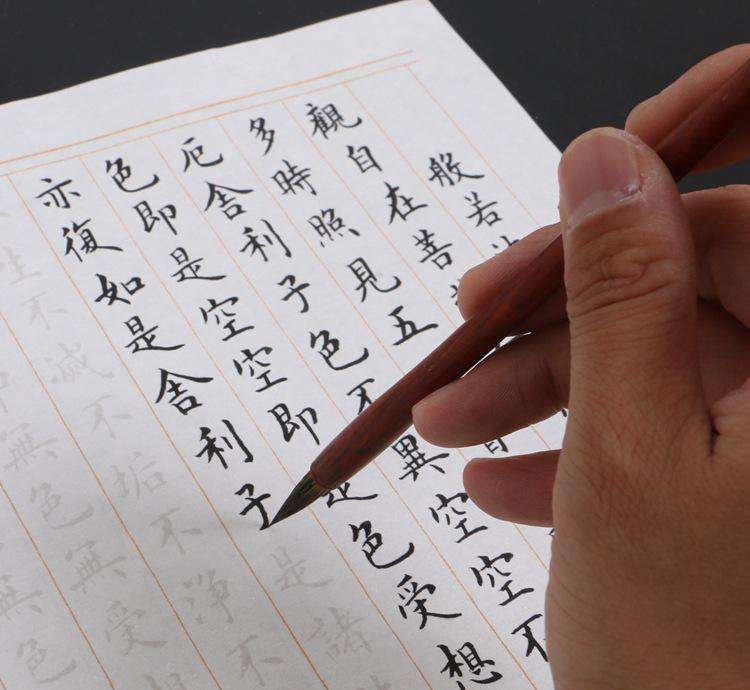 般若
觀自在菩
多時照見五
厄舍利子色不異空空不
色即是空空即是色受想
亦復如是舍利子是諸
生不滅不垢不淨不
無色無受
無色